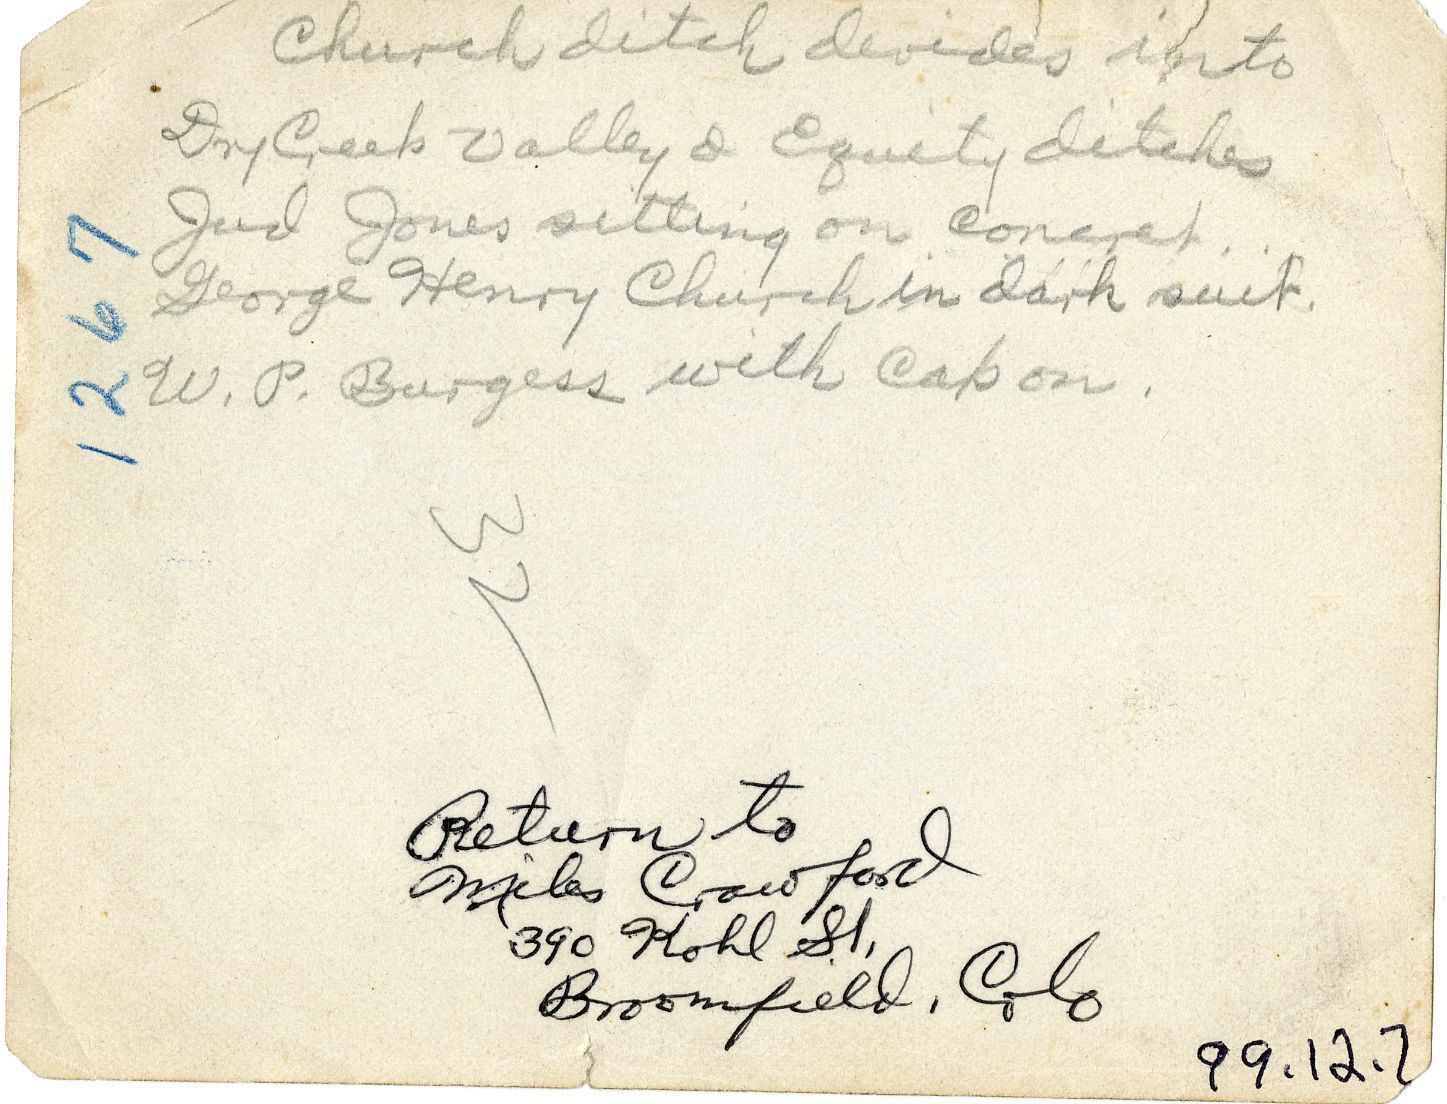 Church ditch devides into
Dry Creek Valley & Equity ditches
Jud Jones setting on concret.
George Henry Church in dark suit.
W. P. Burgess with cap on.
1267
32
Return to
Miles Crawford
390 Kohl St,
Broomfield, Colo
99.12.7